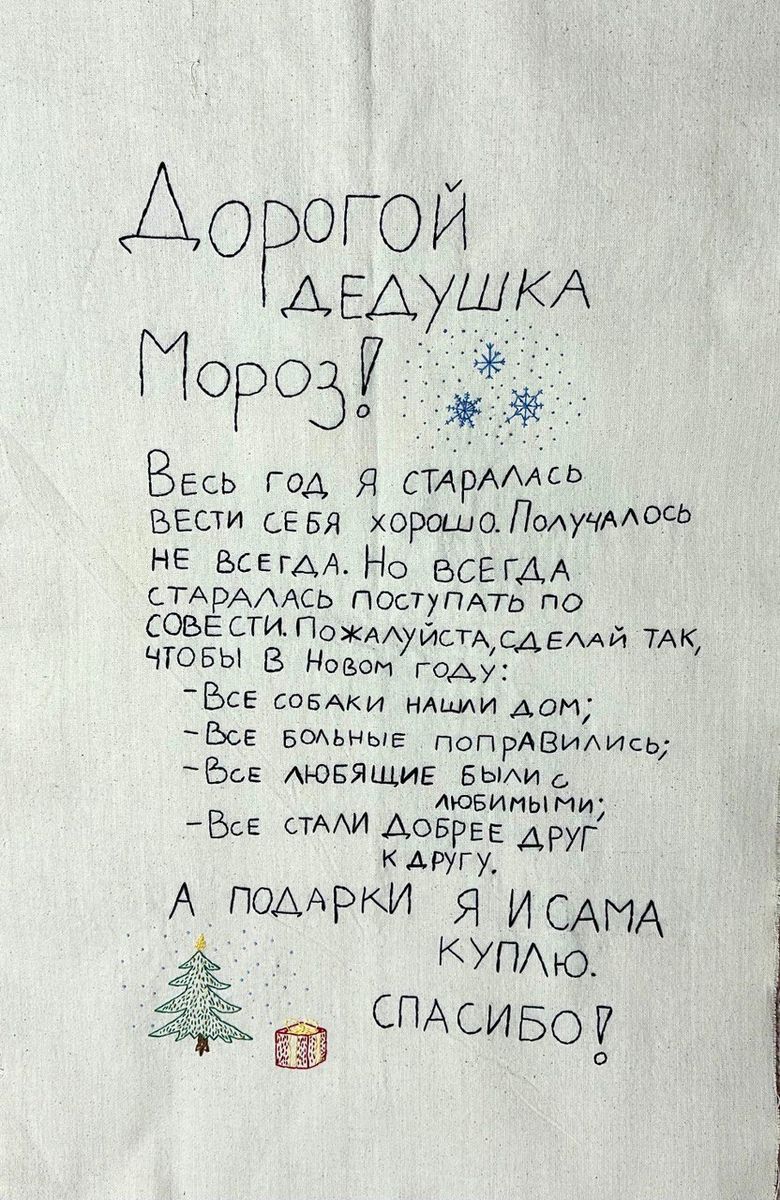 Дорогой
дедушка
Мороз!
Весь год я старалась
вести себя хорошо. Получалось
не всегда. Но всегда
старалась поступать по
совести. Пожалуйста, сделай так,
чтобы в Новом году:
- Все собаки нашли дом;
- Все больные поправились;
- Все любящие были с
любимыми;
- Все стали добрее друг
к другу.
А подарки я и сама
куплю.
Спасибо!